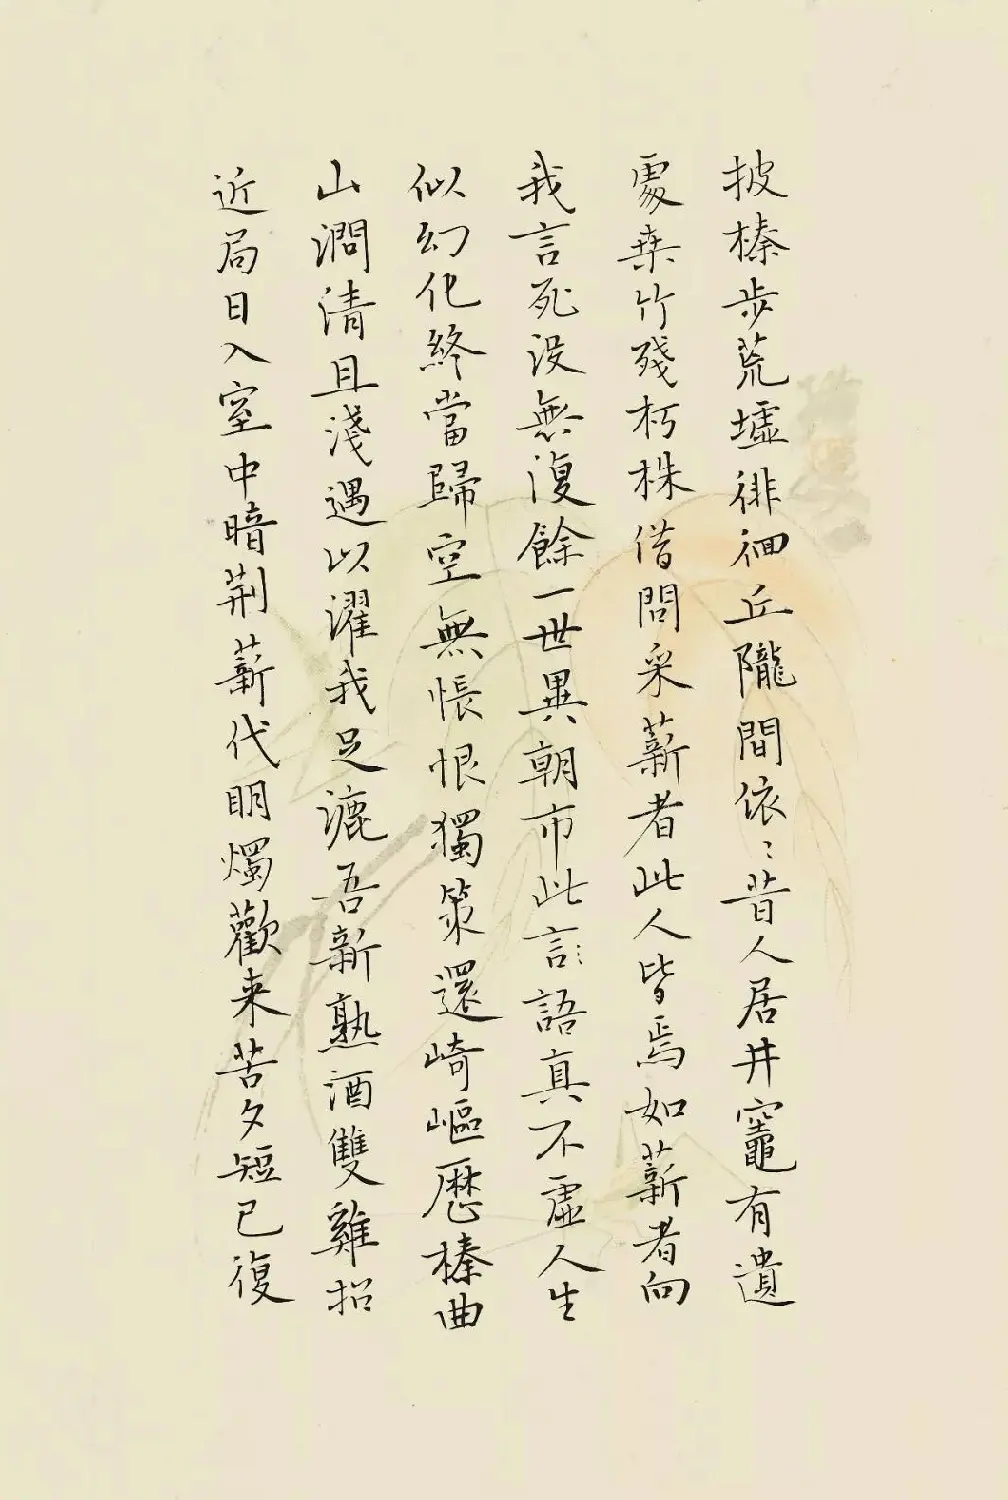 披榛步荒墟徘徊丘隴間依〻昔人居井竈有遺
處桑竹殘朽株借問采薪者此人皆焉如薪者向
我言死没無復餘一世異朝市此言語真不虛人生
似幻化終當歸空無悵恨獨策還崎嶇歷榛曲
山澗清且淺遇以濯我足漉吾新熟酒雙雞招
近局日入室中暗荆薪代明燭歡来苦夕短已復